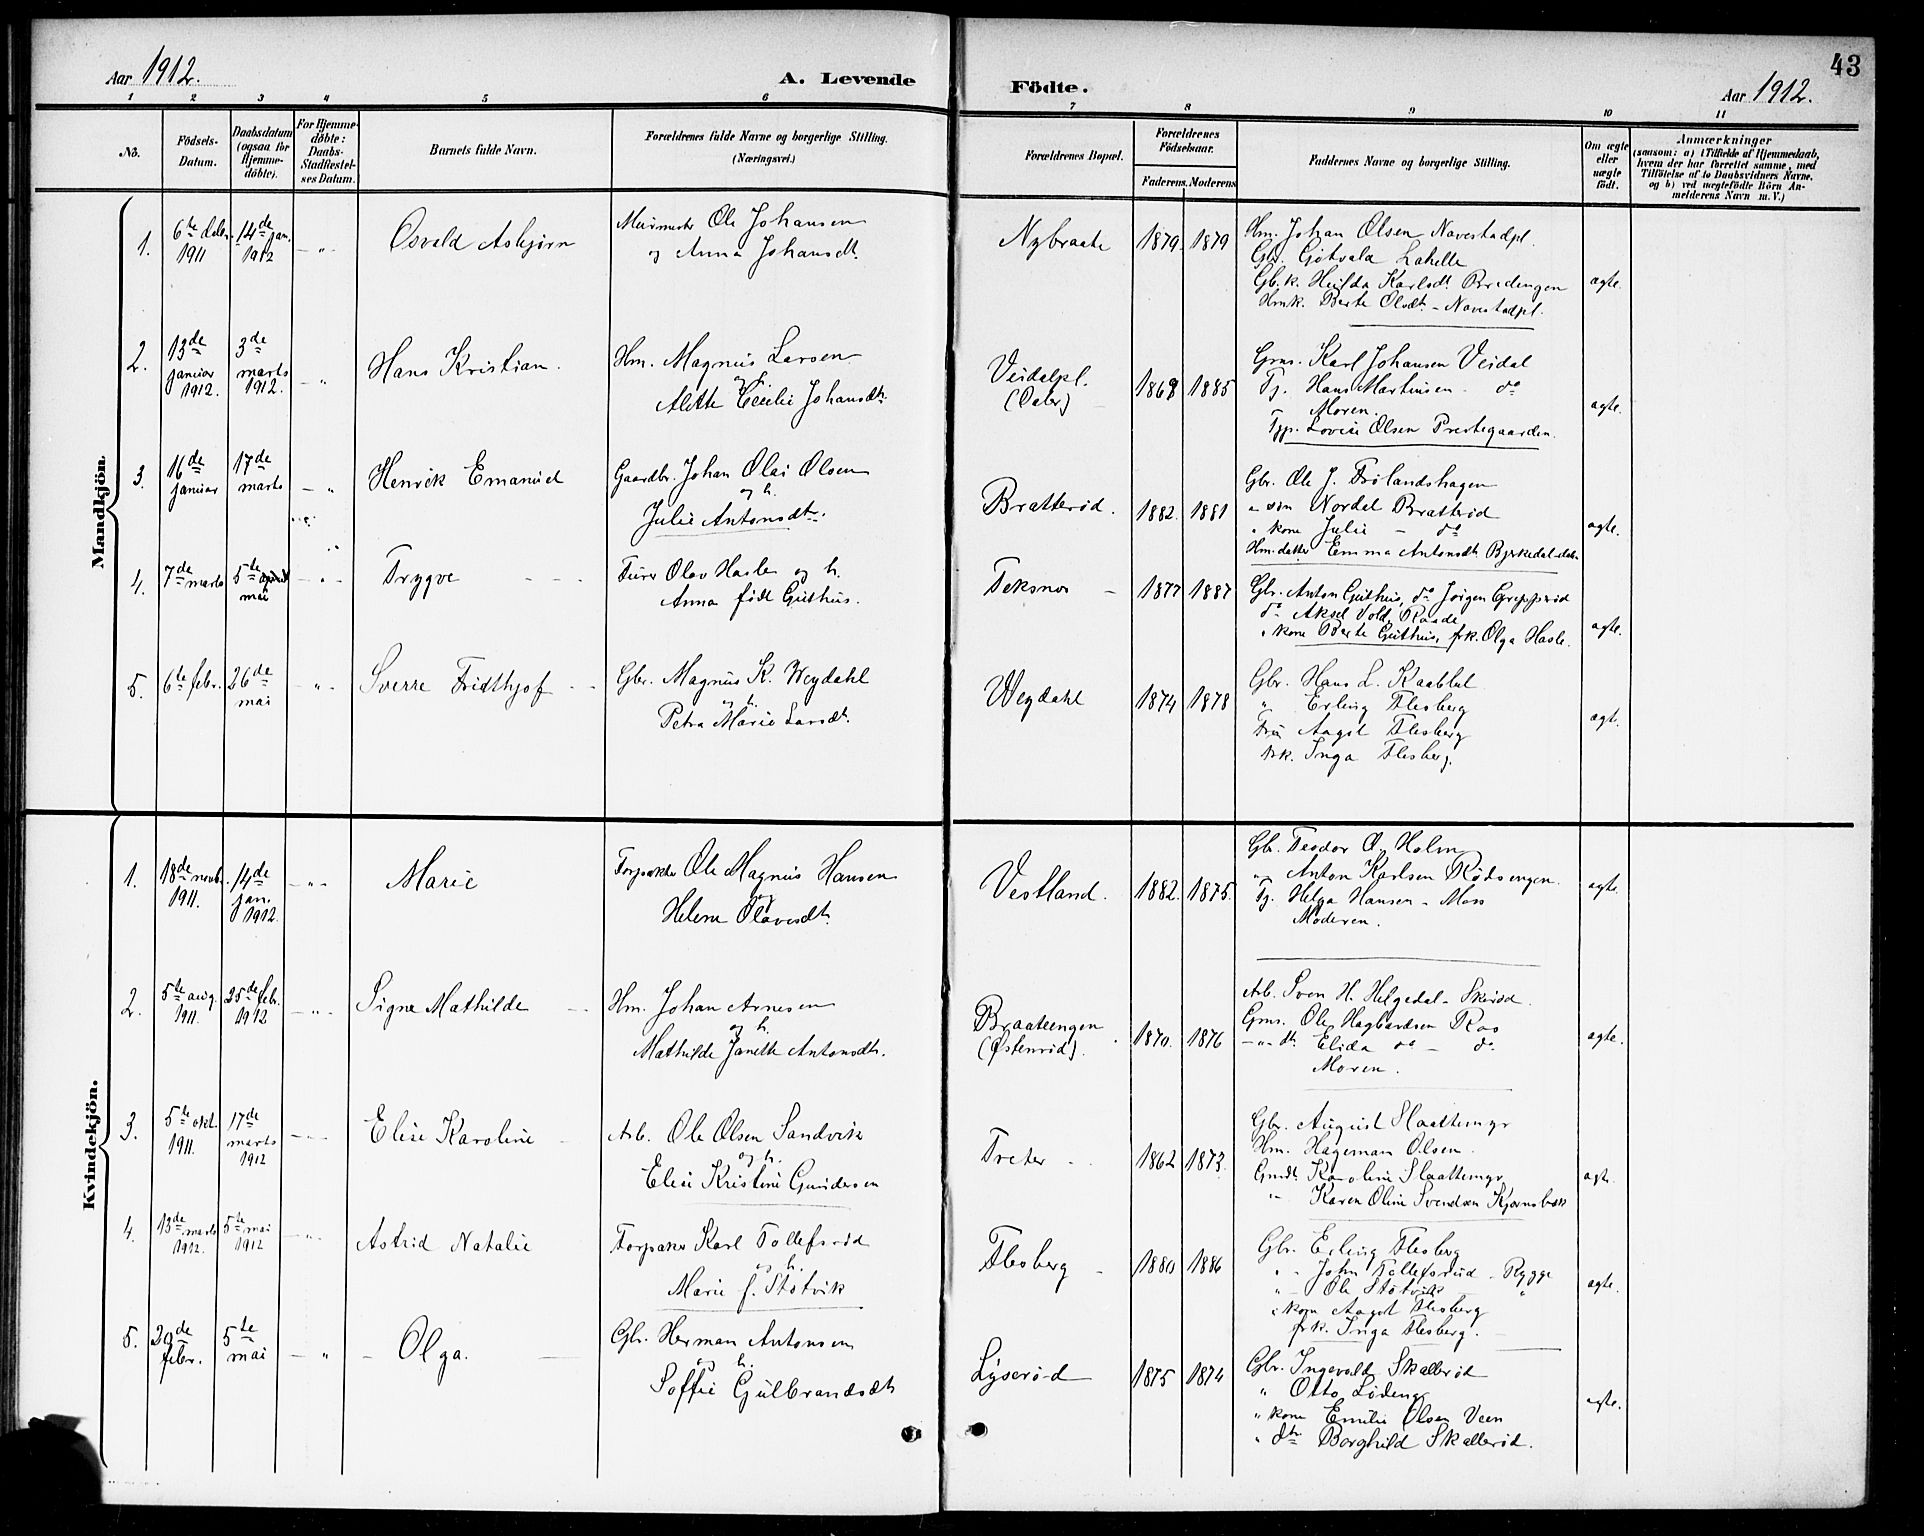 43
Aar 1912.
A. Levende
Födte.
Aar 1912.
1 2 3 4 5 6 7 8 9 10 11
No.
Födsels-
Datum.
Daabsdatum
(ogsaa for
Hjemme-
döbte).
For Hjemme-
döbte:
Daabs-
Stadfæstel-
ses Datum.
Barnets fulde Navn.
Forældrenes fulde Navne og borgerlige Stilling.
(Næringsvei.)
Forældrenes Bopæl.
Forældrenes
Födselsaar.
Faderens. Moderens
Faddernes Navne og borgerlige Stilling.
Om ægte
eller
uægte
födt.
Anmærkninger
(saasom: a) i Tilfælde af Hjemmedaab,
hvem der har forrettet samme, med
Tilföielse af to Daabsvidners Navne,
og b) ved uægtefödte Börn An-
melderens Navn m. V.)
Mandkjön.
1.
6te debr.
1911
14de jan.
1912
Osvald Asbjørn
Ole Johansen
og Anna Johansdt.
Nybraate
1879. 1879
Hm. Johan Olsen Navestadpl.
Gbr. Gotvala Lahelle
Gbk. Hulda Karlsdt. Bredengen
Hmk. Berte Olsdt. - Navestadpl.
ægte.
2.
13de
januar
1912.
3de
marts
1912.
Hans Kristian.
Hm. Magnus Larsen
og h.
Alette Cecilie Johansdt.
Veidalpl.
(Valer)
1868 1885
Grms. Karl Johansen Veidal
Tj. Hans Martinsen - do
Moren.
Lovise Olsen Prestegaarden.
ægte.
3.
16de
januar
17de
marts
Henrik Emanuel
Gaardbr. Johan Olai Olsen
og h.
Julie Antonsdt.
Bratterød.
1882. 1881
Gbr. Ole J. Frølandshagen
" søn Nordal Bratterød
" kone Julie - do
Hm. datter Emma Antonsdt. Bjerkedal
ægte.
4.
7de marts
5te april
mai
Trygve
Olav Hasle og h.
Anna født Guthus.
Teksnes
1877 1887
Gbr. Anton Guthus, do Jørgen Grepperød
do Aksel Vold, Raade
" kone Berte Guthus, frk. Olga Hasle.
ægte.
5.
6te febr.
26de
mai
Sverre Fridthjof
Gbr. Magnus K. Weydahl
og h.
Petra Marie Larsdt.
Weydahl
1874 1878
Gbr. Hans L. Kaabbel
" Erling Flesberg
Fru Aagot Flesberg
frk. Inga Flesberg.
ægt.
Kvindekjön.
1.
18de novbr.
1911.
14de
jan.
1912.
Marie
Forpakter Ole Magnus Hansen
og
Helene Olavesdt.
Vestland.
1882. 1875.
Gbr. Teodor A. Holm
" Anton Karlsen Rødsengen.
Tj. Helga Hansen - Moss
Moderen.
ægte.
2.
5te aug.
1911.
25de febr.
1912
Signe Mathilde
Hm. Johan Arnesen
og h.
Mathilde Janette Antonsdt.
Braateengen
(Østenrød).
1870. 1876
Arb. Sven H. Helgedal - Skeisød.
Gms. Ole Hagbardsen Ros
-"- dt. Elida do - do
Moren.
ægte.
3.
5te okt.
1911.
17de
marts
1912
Elise Karoline
Arb. Ole Olsen Sandvik
og h.
Elise Kristine Gundersen
Treter
1862 1873.
Gbr. August Slaattemyr
Hm. Hageman Olsen.
Gmdt. Karoline Slaattemyr
" Karen Oline Svendsen Kjærnsbæk
ægt.
4.
13de marts
1912.
5te mai
1912
Astrid Natalie
Forpakter Karl Tollefsrød
og h.
Marie f. Støtvik
Flesberg
1880 1886
Gbr. Erling Flesberg
" - John Tollefsrud - Rygge
" - Ole Støtvik "
" kone Aagot Flesberg
frk. Inga Flesberg.
ægte.
5.
29de
febr.
5te
mai
Olga.
Gbr. Herman Antonsen
og h.
Soffie Gulbrandsdt.
Lyserød
1875 1874
Gbr. Ingevald Skallerød
" Otto Lødeng
" kone Emilie Olsen Veen
" dtr. Borghild Skallerød.
ægte.